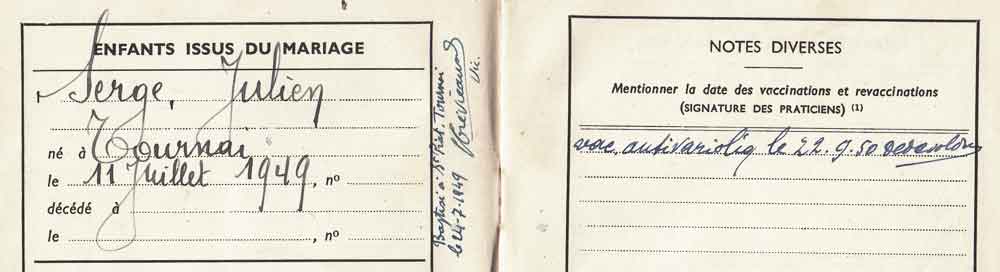 ENFANTS ISSUS DU MARIAGE
Serge, Julien
né à Tournai
le 11 Juillet 1949, nº
décédé à
le , nº
Baptisé à St Piat. Tournai
le 24-7-1949
Vic.
NOTES DIVERSES
Mentionner la date des vaccinations et revaccinations
(SIGNATURE DES PRATICIENS) (1)
vac. antivarioliq le 22.9.50